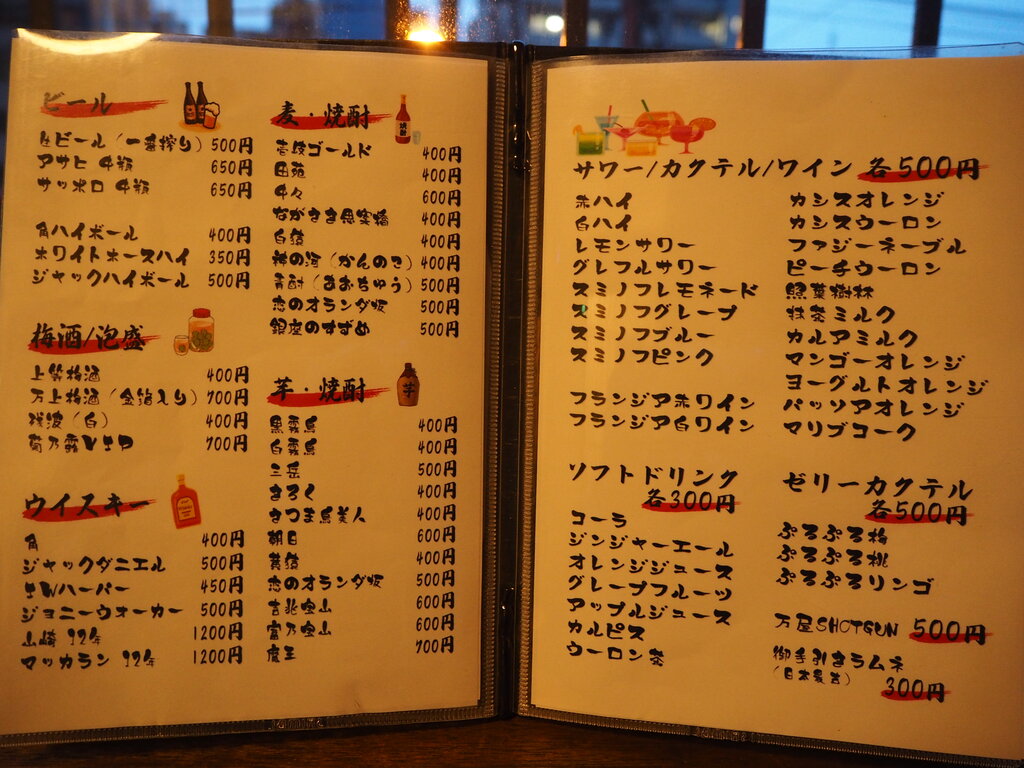 ビール
生ビール（一番搾り） 500円
アサヒ 中瓶 650円
サッポロ 中瓶 650円
角ハイボール 400円
ホワイトホースハイ 350円
ジャックハイボール 500円
梅酒/泡盛
上等梅酒 400円
万上梅酒（金箔入り） 700円
残波（白） 400円
菊乃露VSOP 700円
ウイスキー
角 400円
ジャックダニエル 500円
I.Wハーパー 450円
ジョニーウォーカー 500円
山崎 12年 1200円
マッカラン 12年 1200円
麦・焼酎
壱岐ゴールド 400円
田苑 400円
中々 600円
ながさき思案橋 400円
白猿 400円
神の河（かんのこ） 400円
青酎（あおちゅう） 500円
恋のオランダ坂 500円
銀座のすずめ 500円
芋・焼酎
黒霧島 400円
白霧島 400円
三岳 500円
きろく 400円
さつま島美人 400円
朝日 600円
黄猿 400円
恋のオランダ坂 500円
吉兆宝山 600円
富乃宝山 600円
魔王 700円
サワー/カクテル/ワイン 各500円
赤ハイ
白ハイ
レモンサワー
グレフルサワー
スミノフレモネード
スミノフグレープ
スミノフブルー
スミノフピンク
フランジア赤ワイン
フランジア白ワイン
カシスオレンジ
カシスウーロン
ファジーネーブル
ピーチウーロン
照葉樹林
抹茶ミルク
カルアミルク
マンゴーオレンジ
ヨーグルトオレンジ
パッソアオレンジ
マリブコーク
ソフトドリンク
各300円
コーラ
ジンジャーエール
オレンジジュース
グレープフルーツ
アップルジュース
カルピス
ウーロン茶
ゼリーカクテル
各500円
ぷるぷる梅
ぷるぷる桃
ぷるぷるリンゴ
万屋SHOTGUN 500円
御手引きラムネ
（日本最古）
300円